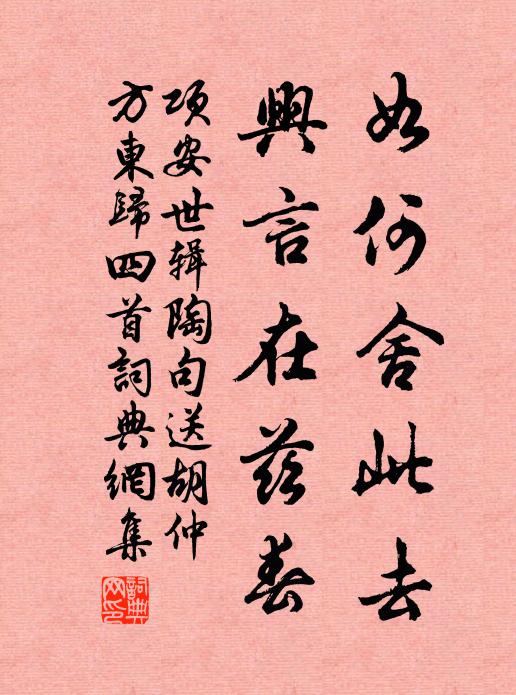 如何舍此去
興言在茲春
項安世辑陶句送胡仲
方東歸四首詞典網集
詞典网印